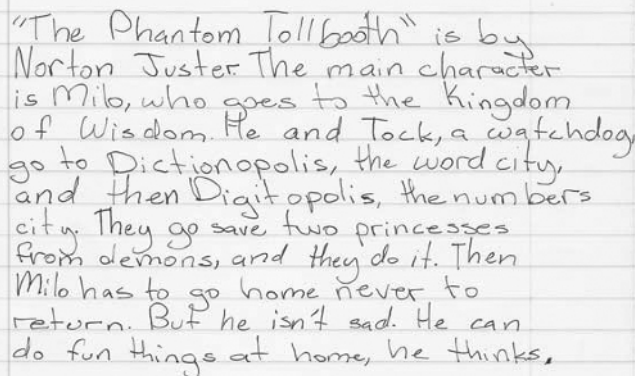 "The Phantom Tollbooth" is by
Norton Juster. The main character
is Milo, who goes to the Kingdom
of Wisdom. He and Tock, a watchdog,
go to Dictionopolis, the word city,
and then Digitopolis, the numbers
city. They go save two princesses
from demons, and they do it. Then
Milo has to go home never to
return. But he isn't sad. He can
do fun things at home, he thinks.